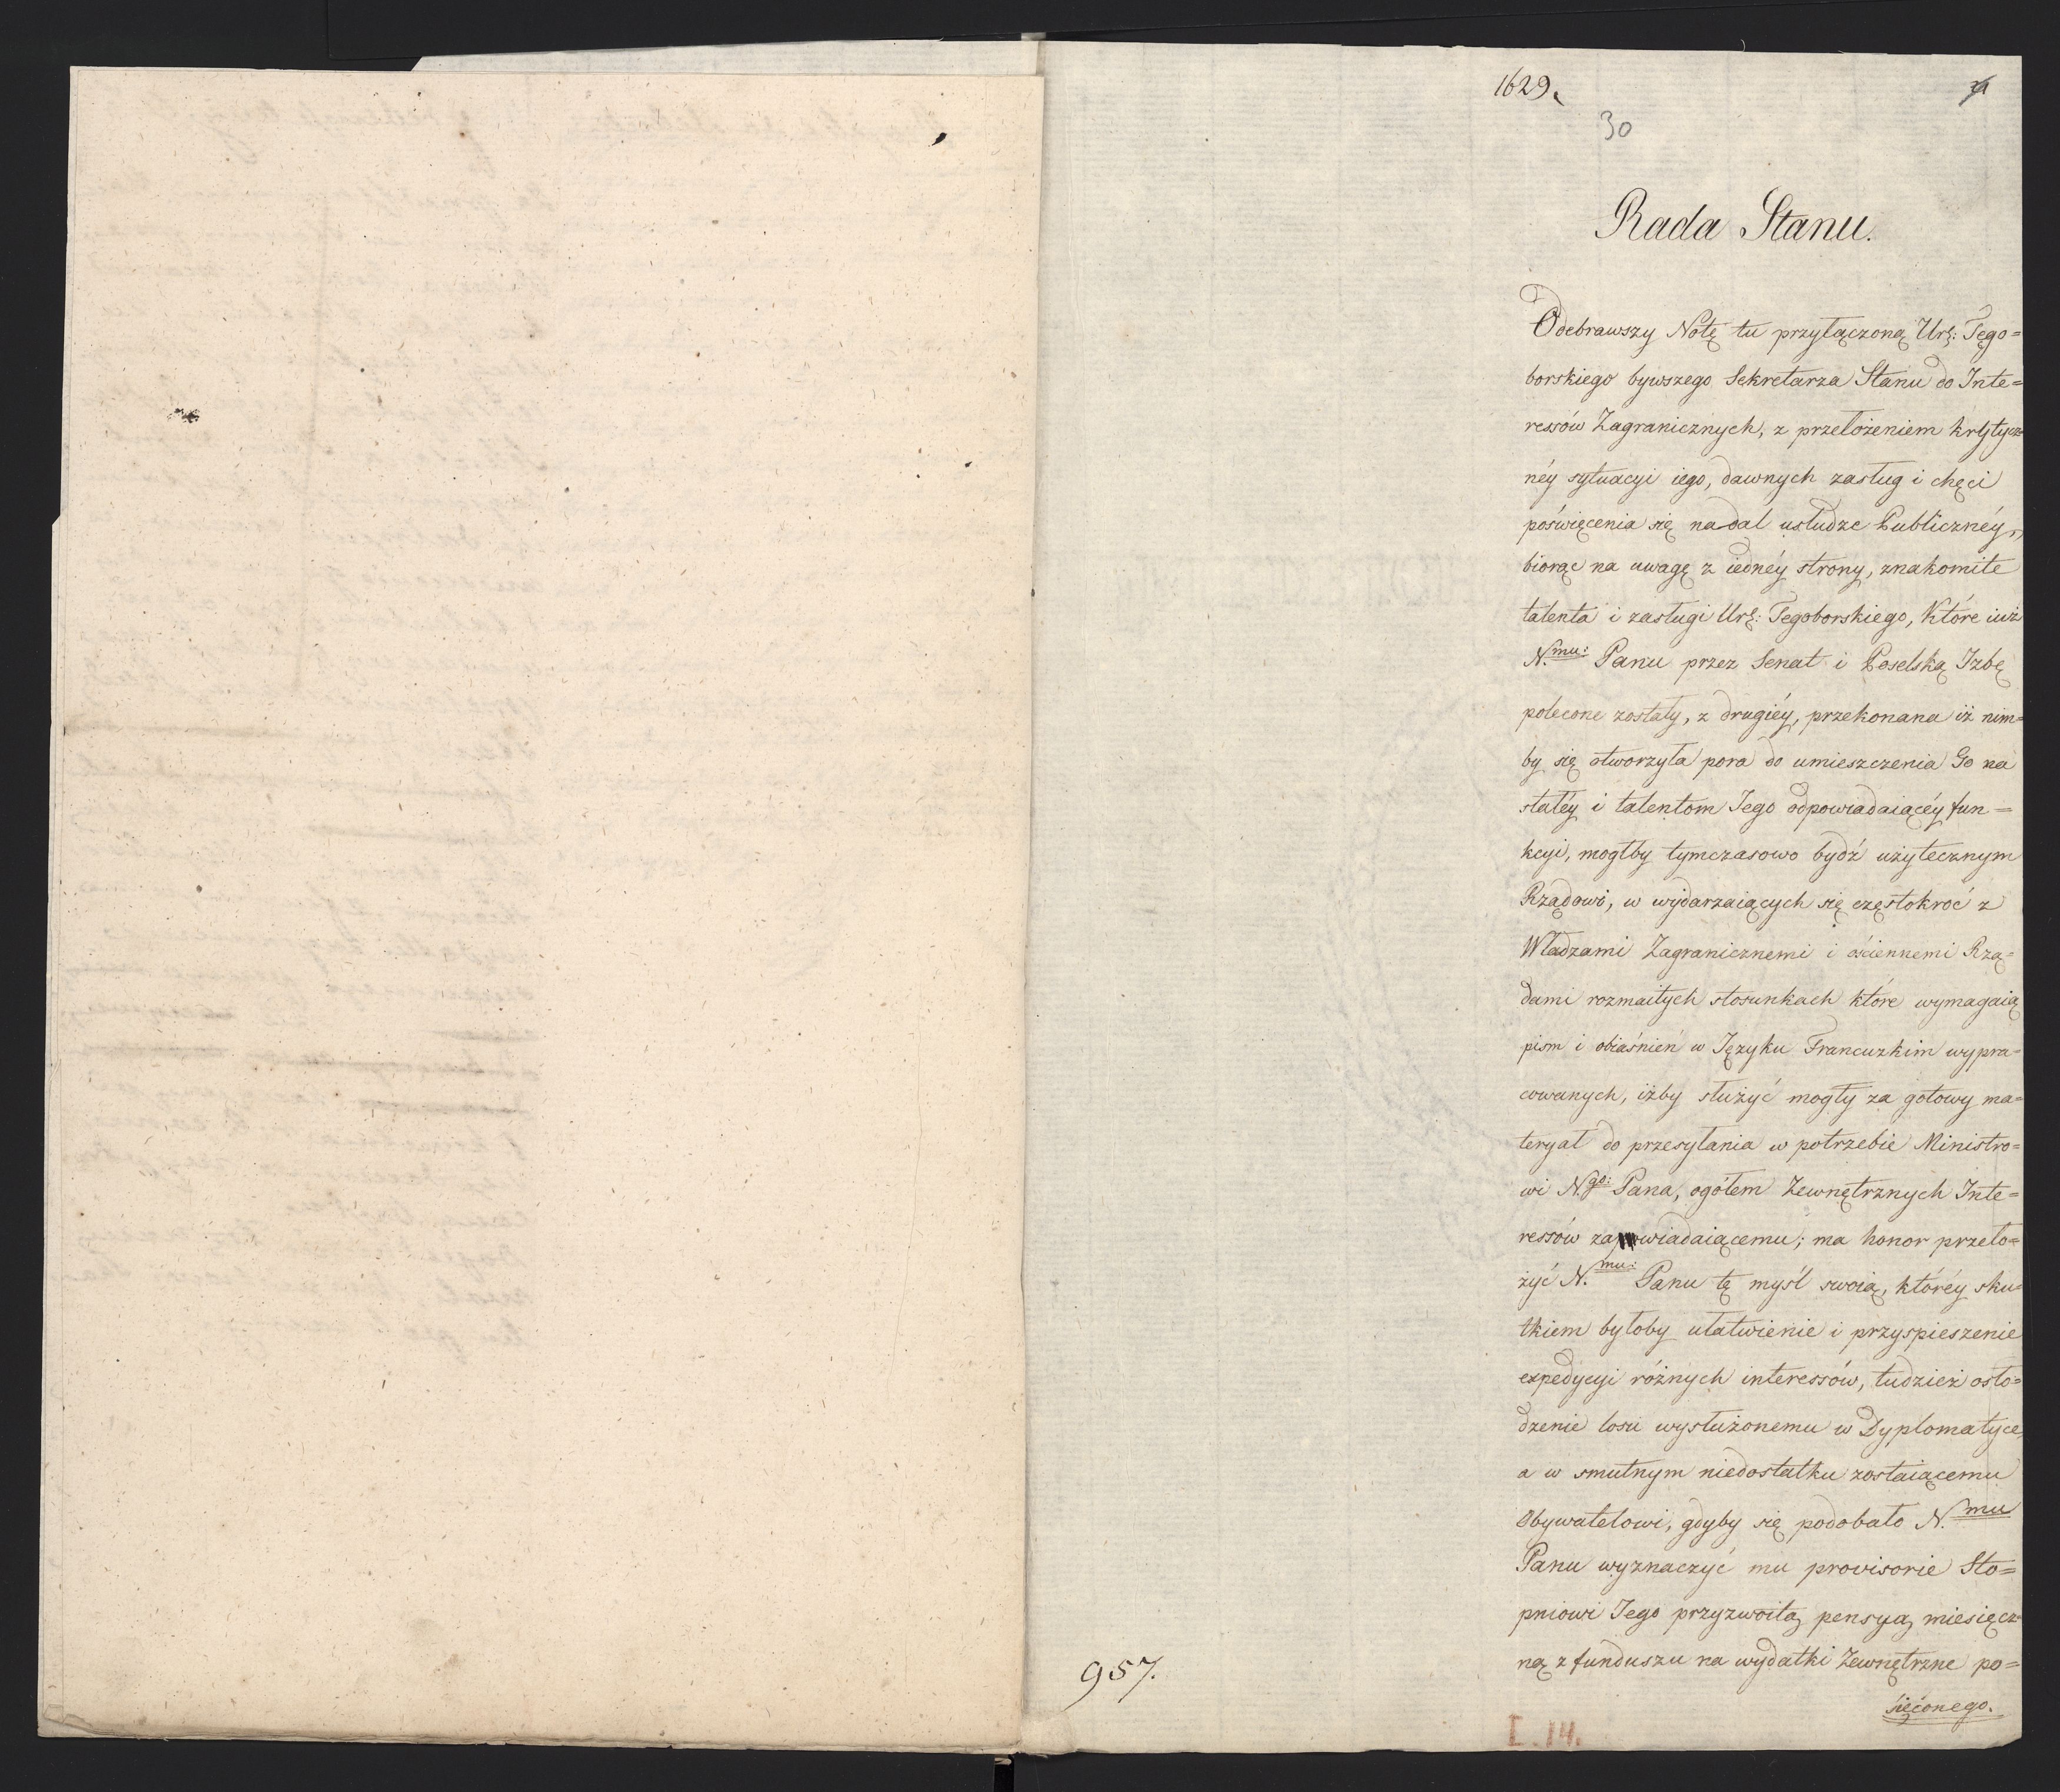 1629.
30
Rada Stanu.
Odebrawszy Notę tu przyłączoną Ur: Tęgo=
borskiego bywszego Sekretarza Stanu do Inte=
ressów Zagranicznych, z przełożeniem krytycz=
néy sytuacyi iego, dawnych zasług i chęci
poświęcenia się nadal usłudze Publicznéy,
biorąc na uwagę z iednéy strony, znakomite
talenta i zasługi Ur: Tegoborskiego, które iuż
N.mu: Panu przez Senat i Poselską Izbę
polecone zostały, z drugiéy, przekonana iż nim=
by się otworzyła pora do umieszczenia Go na
stałéy i talentom Jego odpowiadaiącéy fun=
kcyi, mogłby tymczasowo bydź użytecznym
Rządowi, w wydarzaiących się częstokroć z
Władzami Zagranicznemi i ościennemi Rzą=
dami rozmaitych stosunkach które wymagaią
pism i obiaśnień w Języku Francuzkim wypra=
cowanych, iżby służyć mogły za gotowy ma=
teryał do przesyłania w potrzebie Ministro=
wi N.go: Pana, ogółem Zewnętrznych Inte=
ressów zawiadaiącemu; ma honor przeło=
żyć N.mu: Panu tę myśl swoią, któréy sku=
tkiem byłoby ułatwienie i przyspieszenie
expedycyi różnych interessów, tudzież osło=
dzenie losu wysłużonemu w Dyplomatyce,
a w smutnym niedostatku zostaiącemu
Obywatelowi, gdyby się podobało N.mu
Panu wyznaczyć mu provisorie Sto=
pniowi Jego przyzwoitą pensyą miesięcz=
ną z funduszu na wydatki Zewnętrzne po=
święconego.
957.
I. 14.